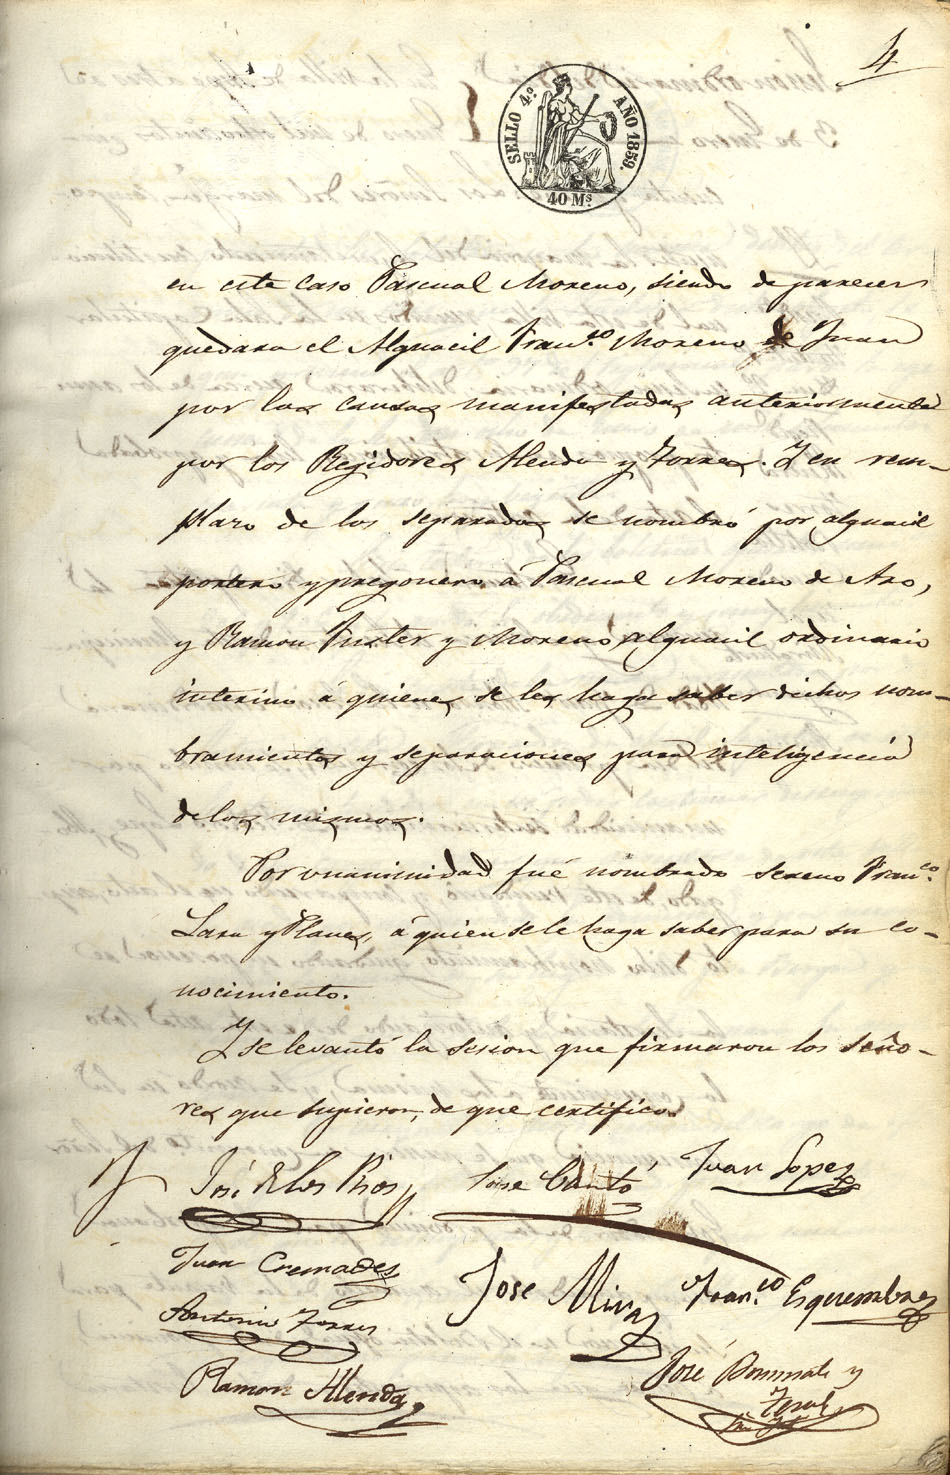 4
SELLO 4.º AÑO 1859.
40 Ms.
en este caso Pascual Moreno, siendo de parecer
quedara el Alguacil Fran.co Moreno de Juan
por las causas manifestadas anteriormente
por los Regidores Alenda y Torres. Y en reem-
plazo de los separados se nombró por alguacil
portero y pregonero á Pascual Moreno de Aro,
y Ramon Fuster y Moreno alguacil ordinario
interino á quienes se les haga saber dichos nom-
bramientos y separaciones para inteligencia
de los mismos.
Por unanimidad fué nombrado sereno Fran.co
Lara y Planes, á quien se le haga saber para su co-
nocimiento.
Y se levantó la sesion que firmaron los seño-
res que supieron, de que certifico.
José de los Rios
Jose Cantó
Juan Lopez
Juan Cremades
Jose Mira
Fran.co Esquembre
Antonio Torres
Ramon Allenda
José y